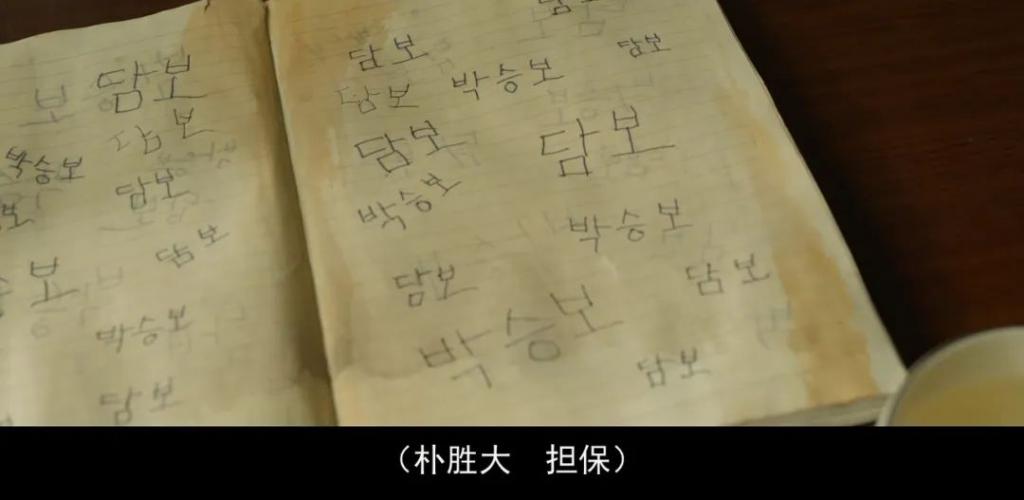 보 담보
담보
박승보
담보
담보
보
박승보
담보
담보
담보
담보
박승보
담보
담보
담보
박승보
박승보
담보
담보
박승보
담보
（朴胜大　担保）